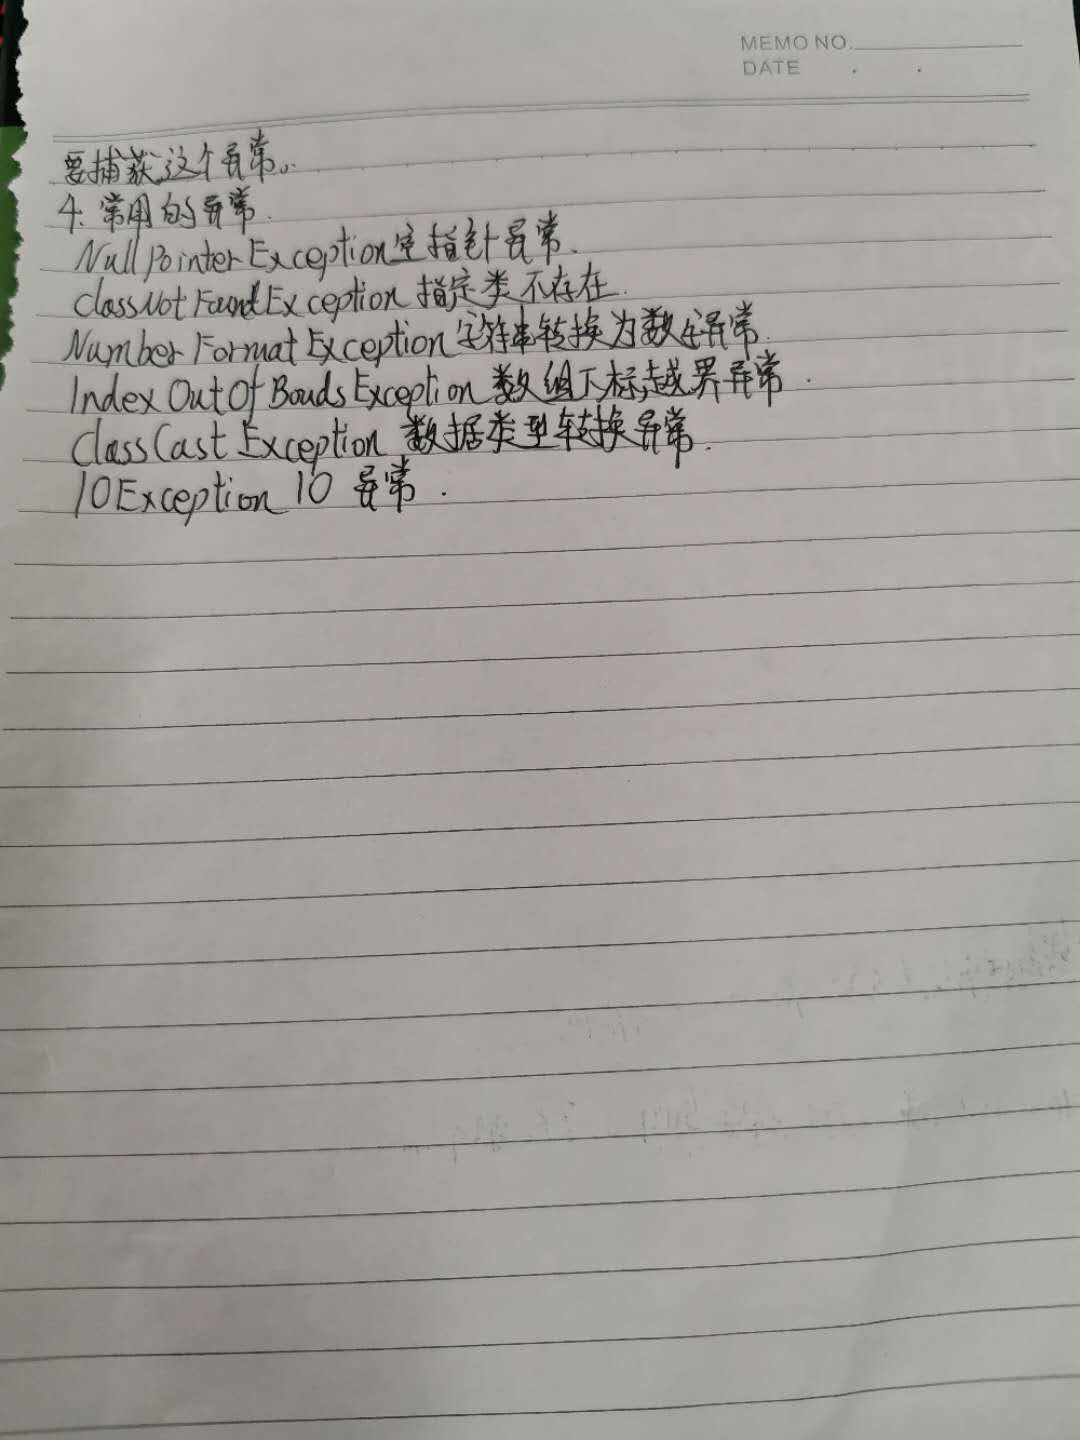 MEMO NO.
DATE . .
要捕获这个异常。
4. 常用的异常.
NullPointerException空指针异常.
classNotFoundException 指定类不存在.
NumberFormatException 字符串转换为数字异常.
IndexOutOfBoudsException 数组下标越界异常.
ClassCastException 数据类型转换异常.
IOException IO 异常.